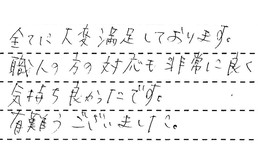 全てに大変満足しております。
職人の方の対応も非常に良く
気持ち良かったです。
有難うございました。